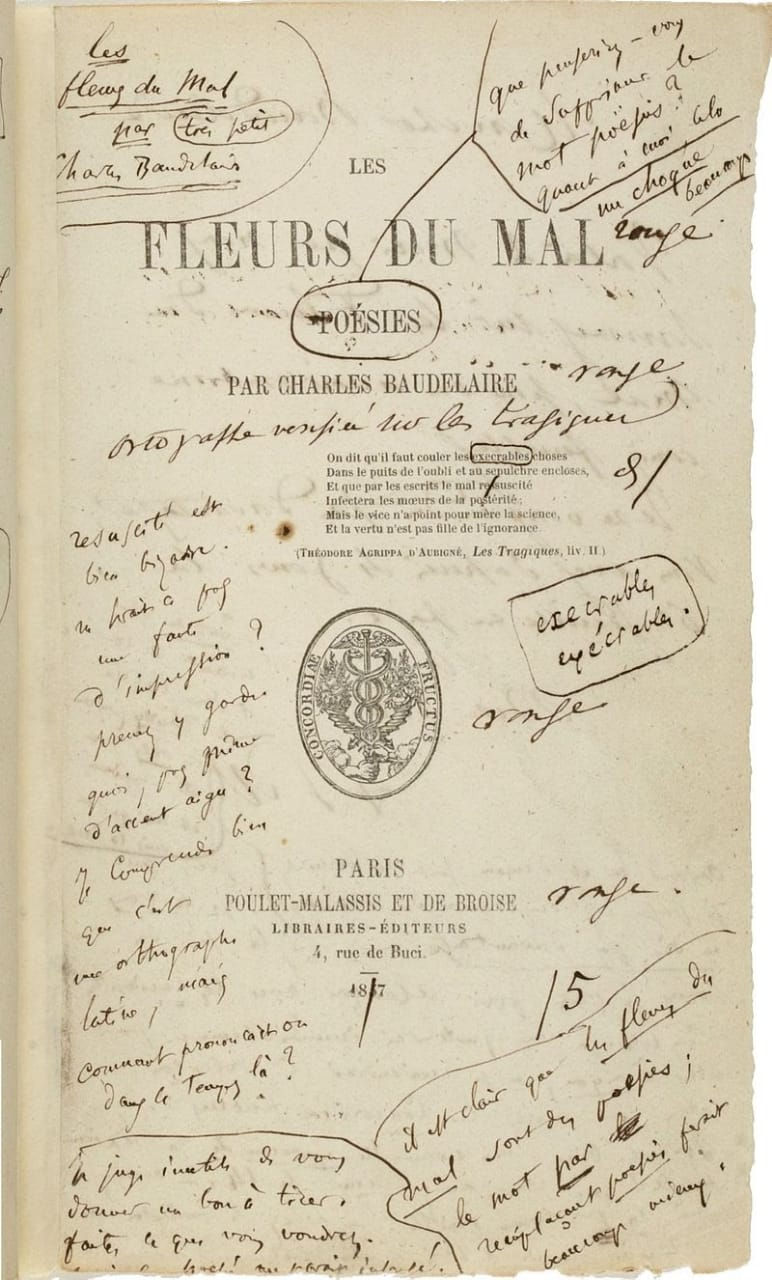 les
fleurs du Mal
par très petit
Charles Baudelaire
que penseriez-vous
de supprimer le
mot poésies?
quant à moi cela
me choque
beaucoup
LES
FLEURS DU MAL
rouge
POÉSIES
PAR CHARLES BAUDELAIRE
rouge
ortografe vérifiée sur les tragiques
On dit qu'il faut couler les execrables choses
Dans le puits de l'oubli et au sepulchre encloses,
Et que par les escrits le mal resuscité
Infectera les mœurs de la postérité;
Mais le vice n'a point pour mère la science,
Et la vertu n'est pas fille de l'ignorance.
(THÉODORE AGRIPPA D'AUBIGNÉ, Les Tragiques, liv. II.)
resuscité est
bien bizarre.
ne serait-ce pas
une faute
d'impression?
prenez y garde.
quoi, pas même
d'accent aigu?
je comprends bien
que c'est
une orthographe
latine, mais
comment prononçait-on
dans ce temps là?
execrables
exécrables.
CONCORDIÆ FRUCTUS
rouge
PARIS
POULET-MALASSIS ET DE BROISE
rouge.
LIBRAIRES-ÉDITEURS
4, rue de Buci.
1857
/5
il est clair que les fleurs du
mal sont des poésies;
le mot par
remplaçant poésies ferait
beaucoup mieux.
Je juge inutile de vous
donner un bon à tirer.
faites ce que vous voudrez.